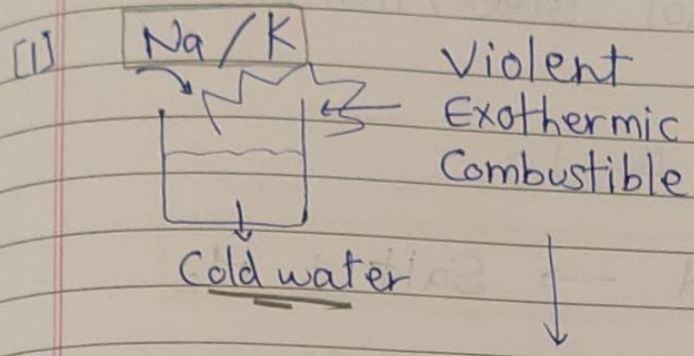 [1] Na/K
Violent
Exothermic
Combustible
Cold water